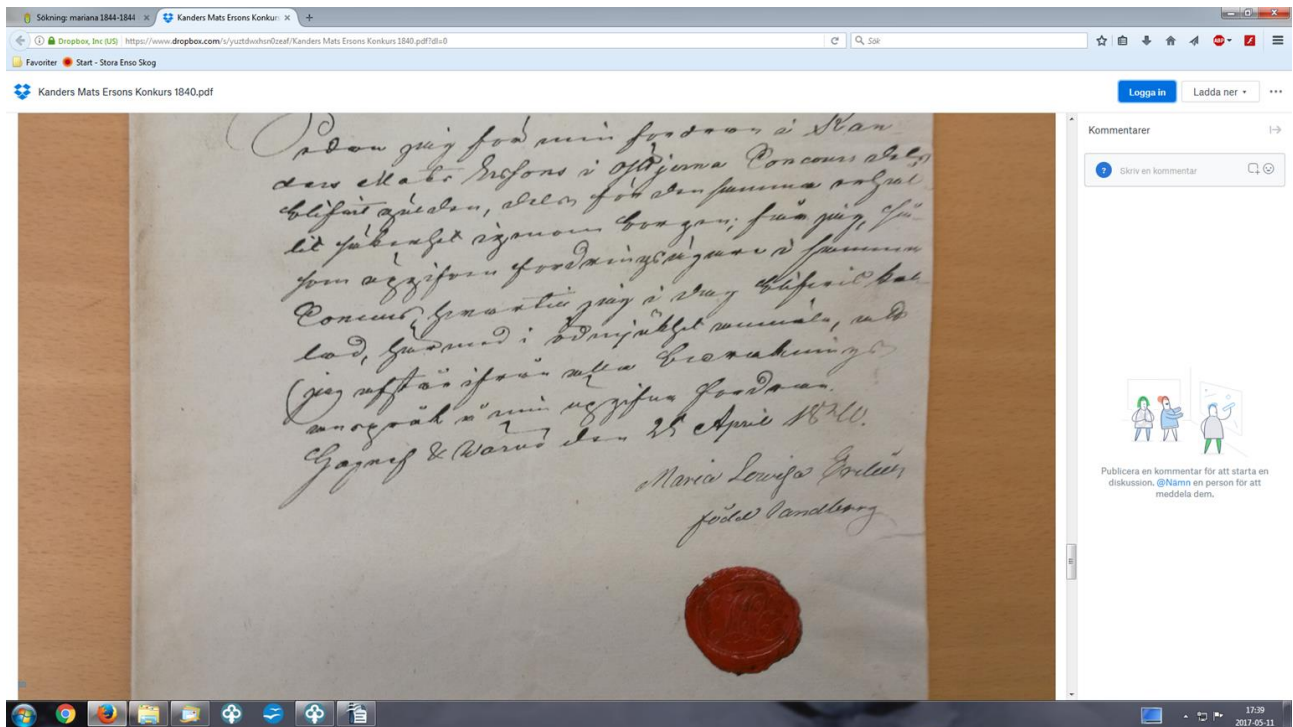 Sökning: mariana 1844-1844
Kanders Mats Ersons Konkurs
Dropbox, Inc (US) https://www.dropbox.com/s/yuztdwxhsn0zeaf/Kanders Mats Ersons Konkurs 1840.pdf?dl=0
Sök
Favoriter Start - Stora Enso Skog
Kanders Mats Ersons Konkurs 1840.pdf
Logga in
Ladda ner
Kommentarer
Skriv en kommentar
Sedan jag för min fordran i Kan-
ders Mats Ersons i Concours dels
blifvit gulden, dels för densamma erhål-
lit säkerhet igenom borgen; får jag, så-
som uppgifven fordringsägare i samma
Concurs, hwartil jag i dag blifvit kal-
lad, härmed i ödmjukhet anmäla, att
jag afstår ifrån alla bewaknings
anspråk å min uppgifna fordran.
Gagnef & den 25 April 1840.
Maria Lovisa
född Sandberg
Publicera en kommentar för att starta en
diskussion. @Namn en person för att
meddela dem.
17:39
2017-05-11